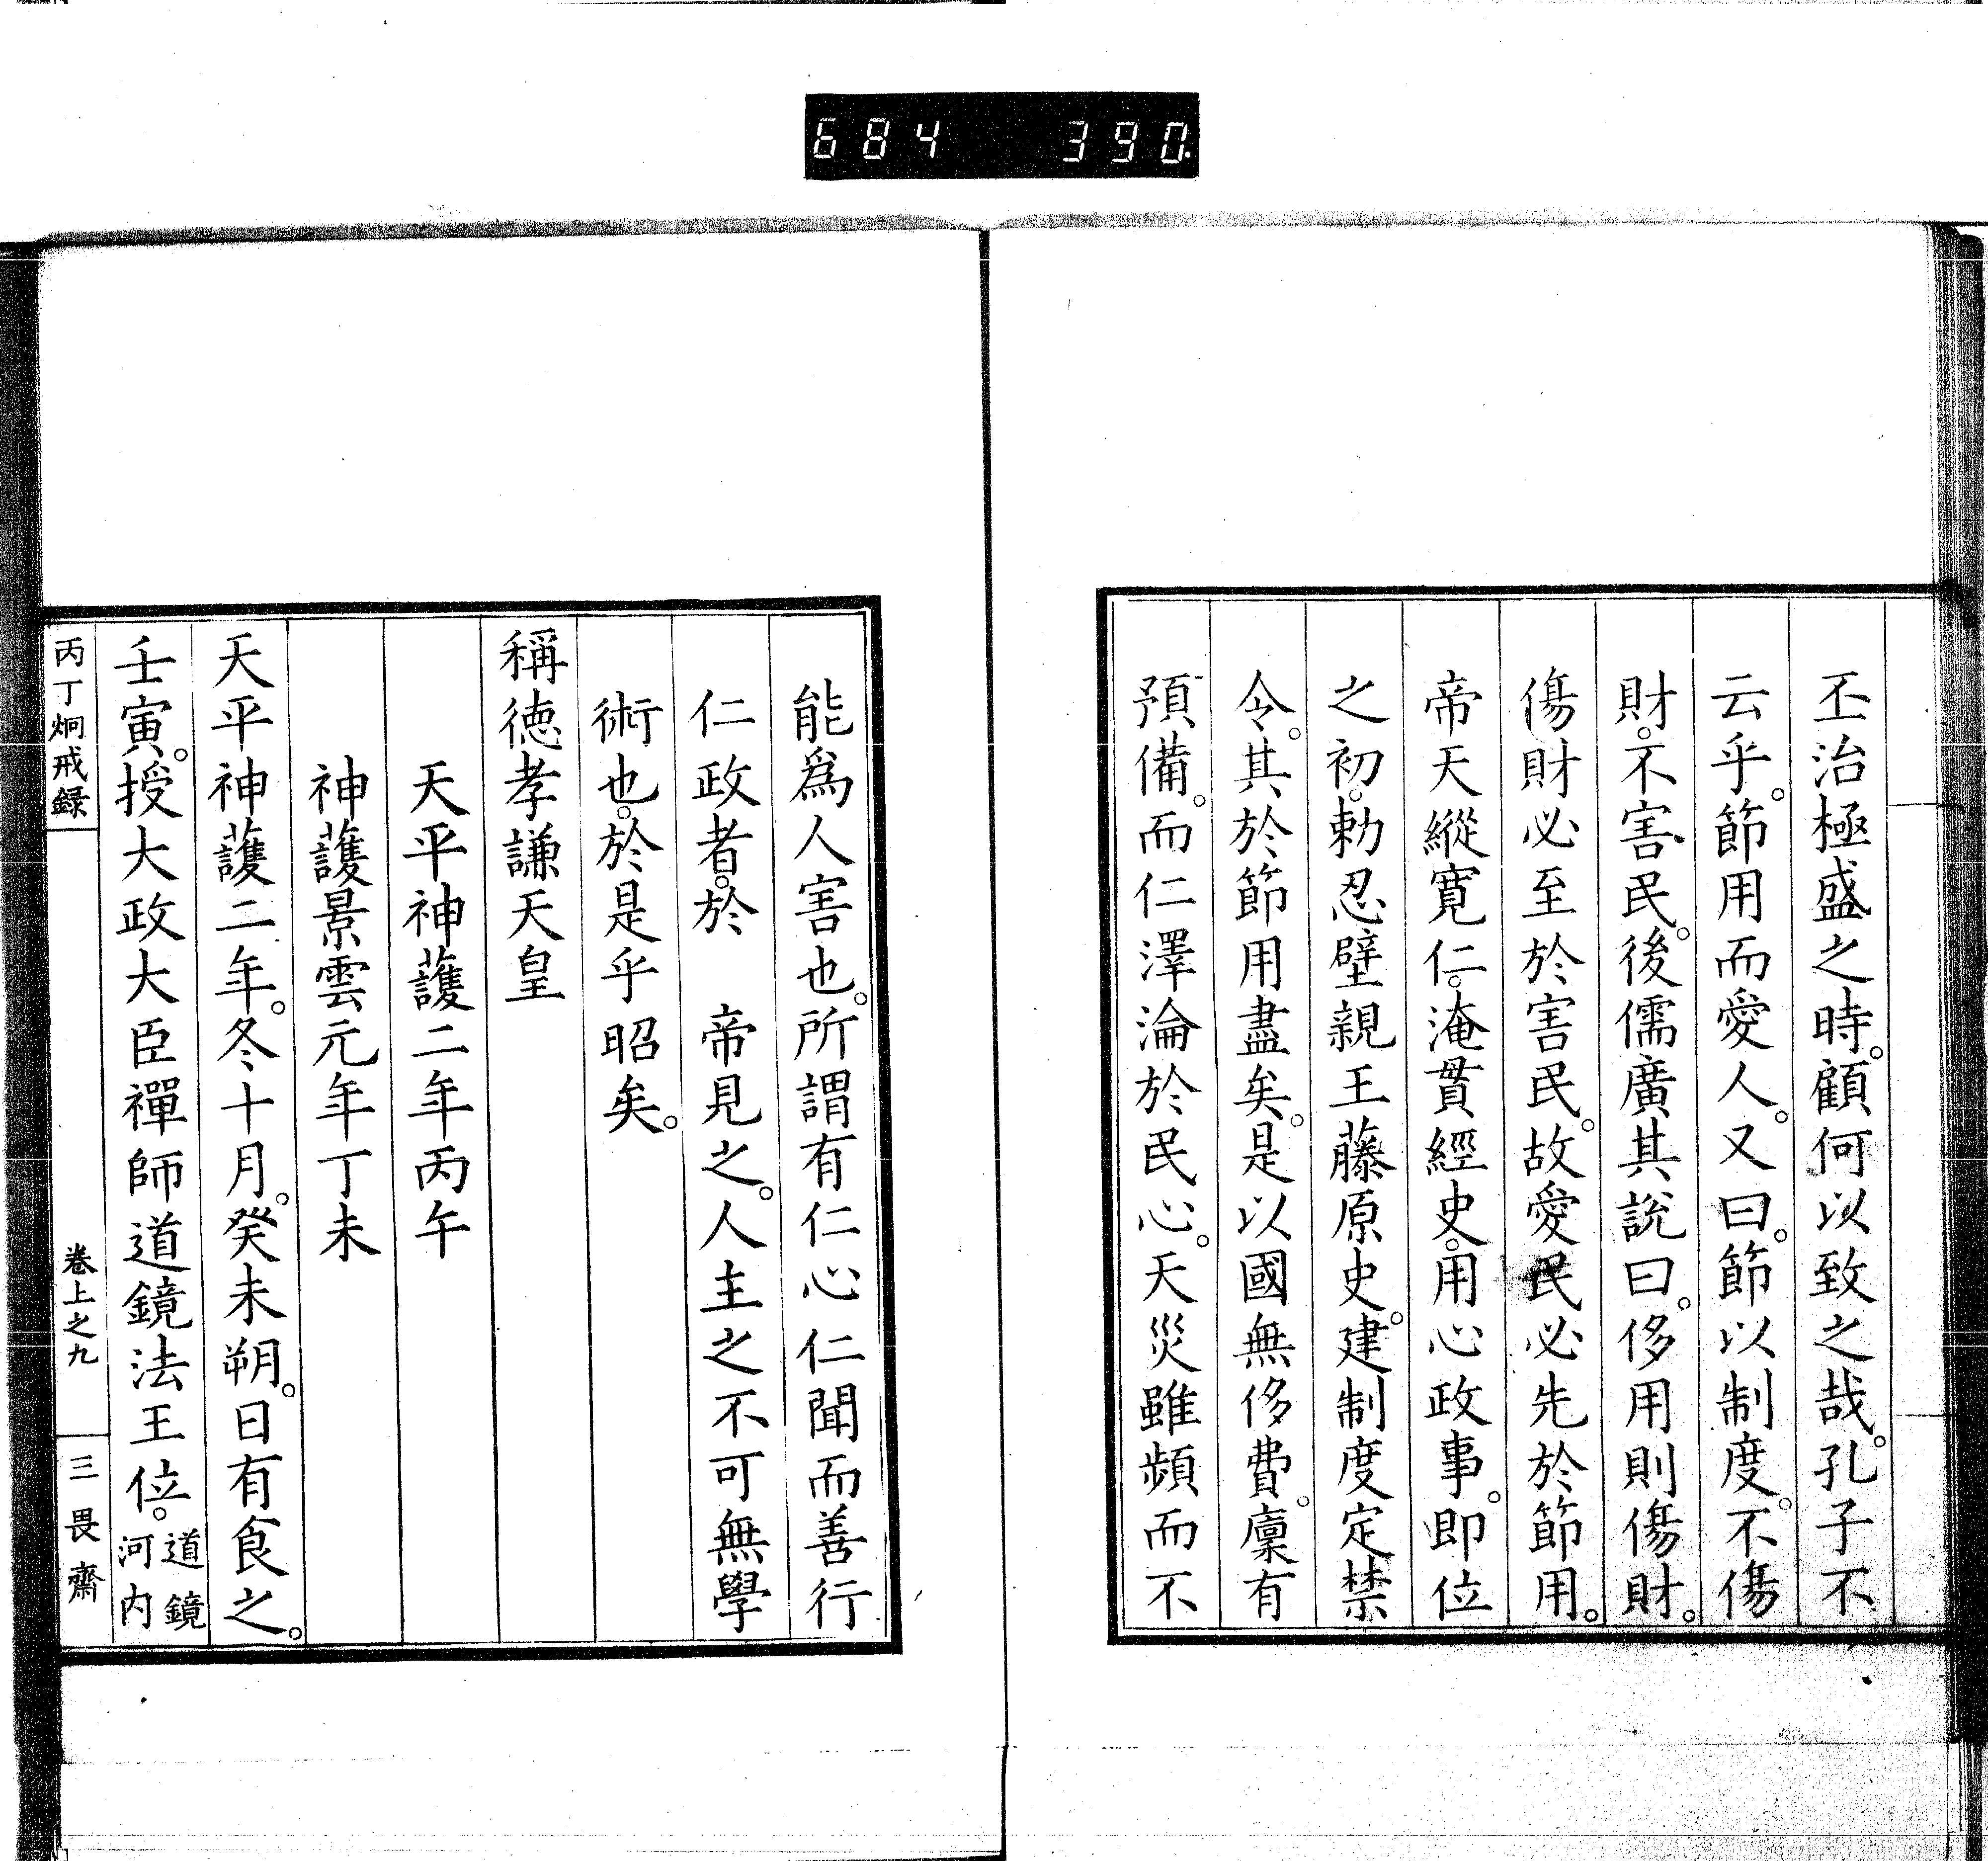 684 390
丕治極盛之時。顧何以致之哉。孔子不
云乎。節用而愛人。又曰。節以制度。不傷
財。不害民。後儒廣其説曰。侈用則傷財。
傷財必至於害民。故愛民必先於節用。
帝天縱寛仁。淹貫經史。用心政事。即位
之初。勅忍壁親王藤原史。建制度定禁
令。其於節用盡矣。是以國無侈費。廩有
預備。而仁澤淪於民心。天災雖頻而不
能爲人害也。所謂有仁心仁聞而善行
仁政者。於　帝見之。人主之不可無學
術也。於是乎昭矣。
稱徳孝謙天皇
天平神護二年丙午
神護景雲元年丁未
天平神護二年。冬十月。癸未朔。日有食之。
壬寅。授大政大臣禪師道鏡法王位。道鏡
河内
丙丁炯戒録
卷上之九
三畏齋